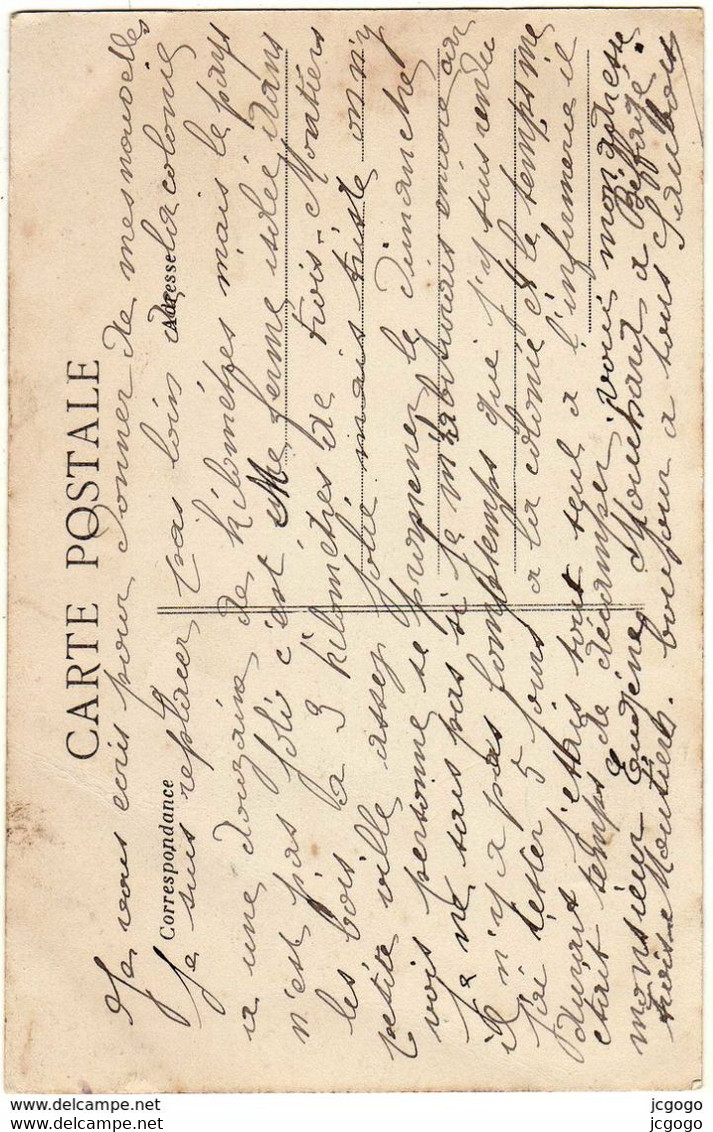 CARTE POSTALE
Correspondance
Adresse
Je vous ecris pour donner de mes nouvelles
Je suis replacer pas loin de la colonie
a une douzaine de kilomètres mais le pays
n'est pas joli c'est une ferme isolée dans
les bois a 3 kilomètres de trois-Moutiers
petite ville assez jolie mais triste on n'y
vois personne se promener le dimanche
Je ne sais pas si je m'abiturais encore car
il n'y a pas lomptemps que j'y suis rendu
j'ai rester 5 jours a la colonie et le temps me
durait j'étais tout seul a l'infirmerie il
etait temps de décamper voici mon adresse
monsieur Eugéne Mouchard a Beffagé
trois Moutiers. boujour a tous
delcampe.net
delcampe.net
jcgogo
jcgogo